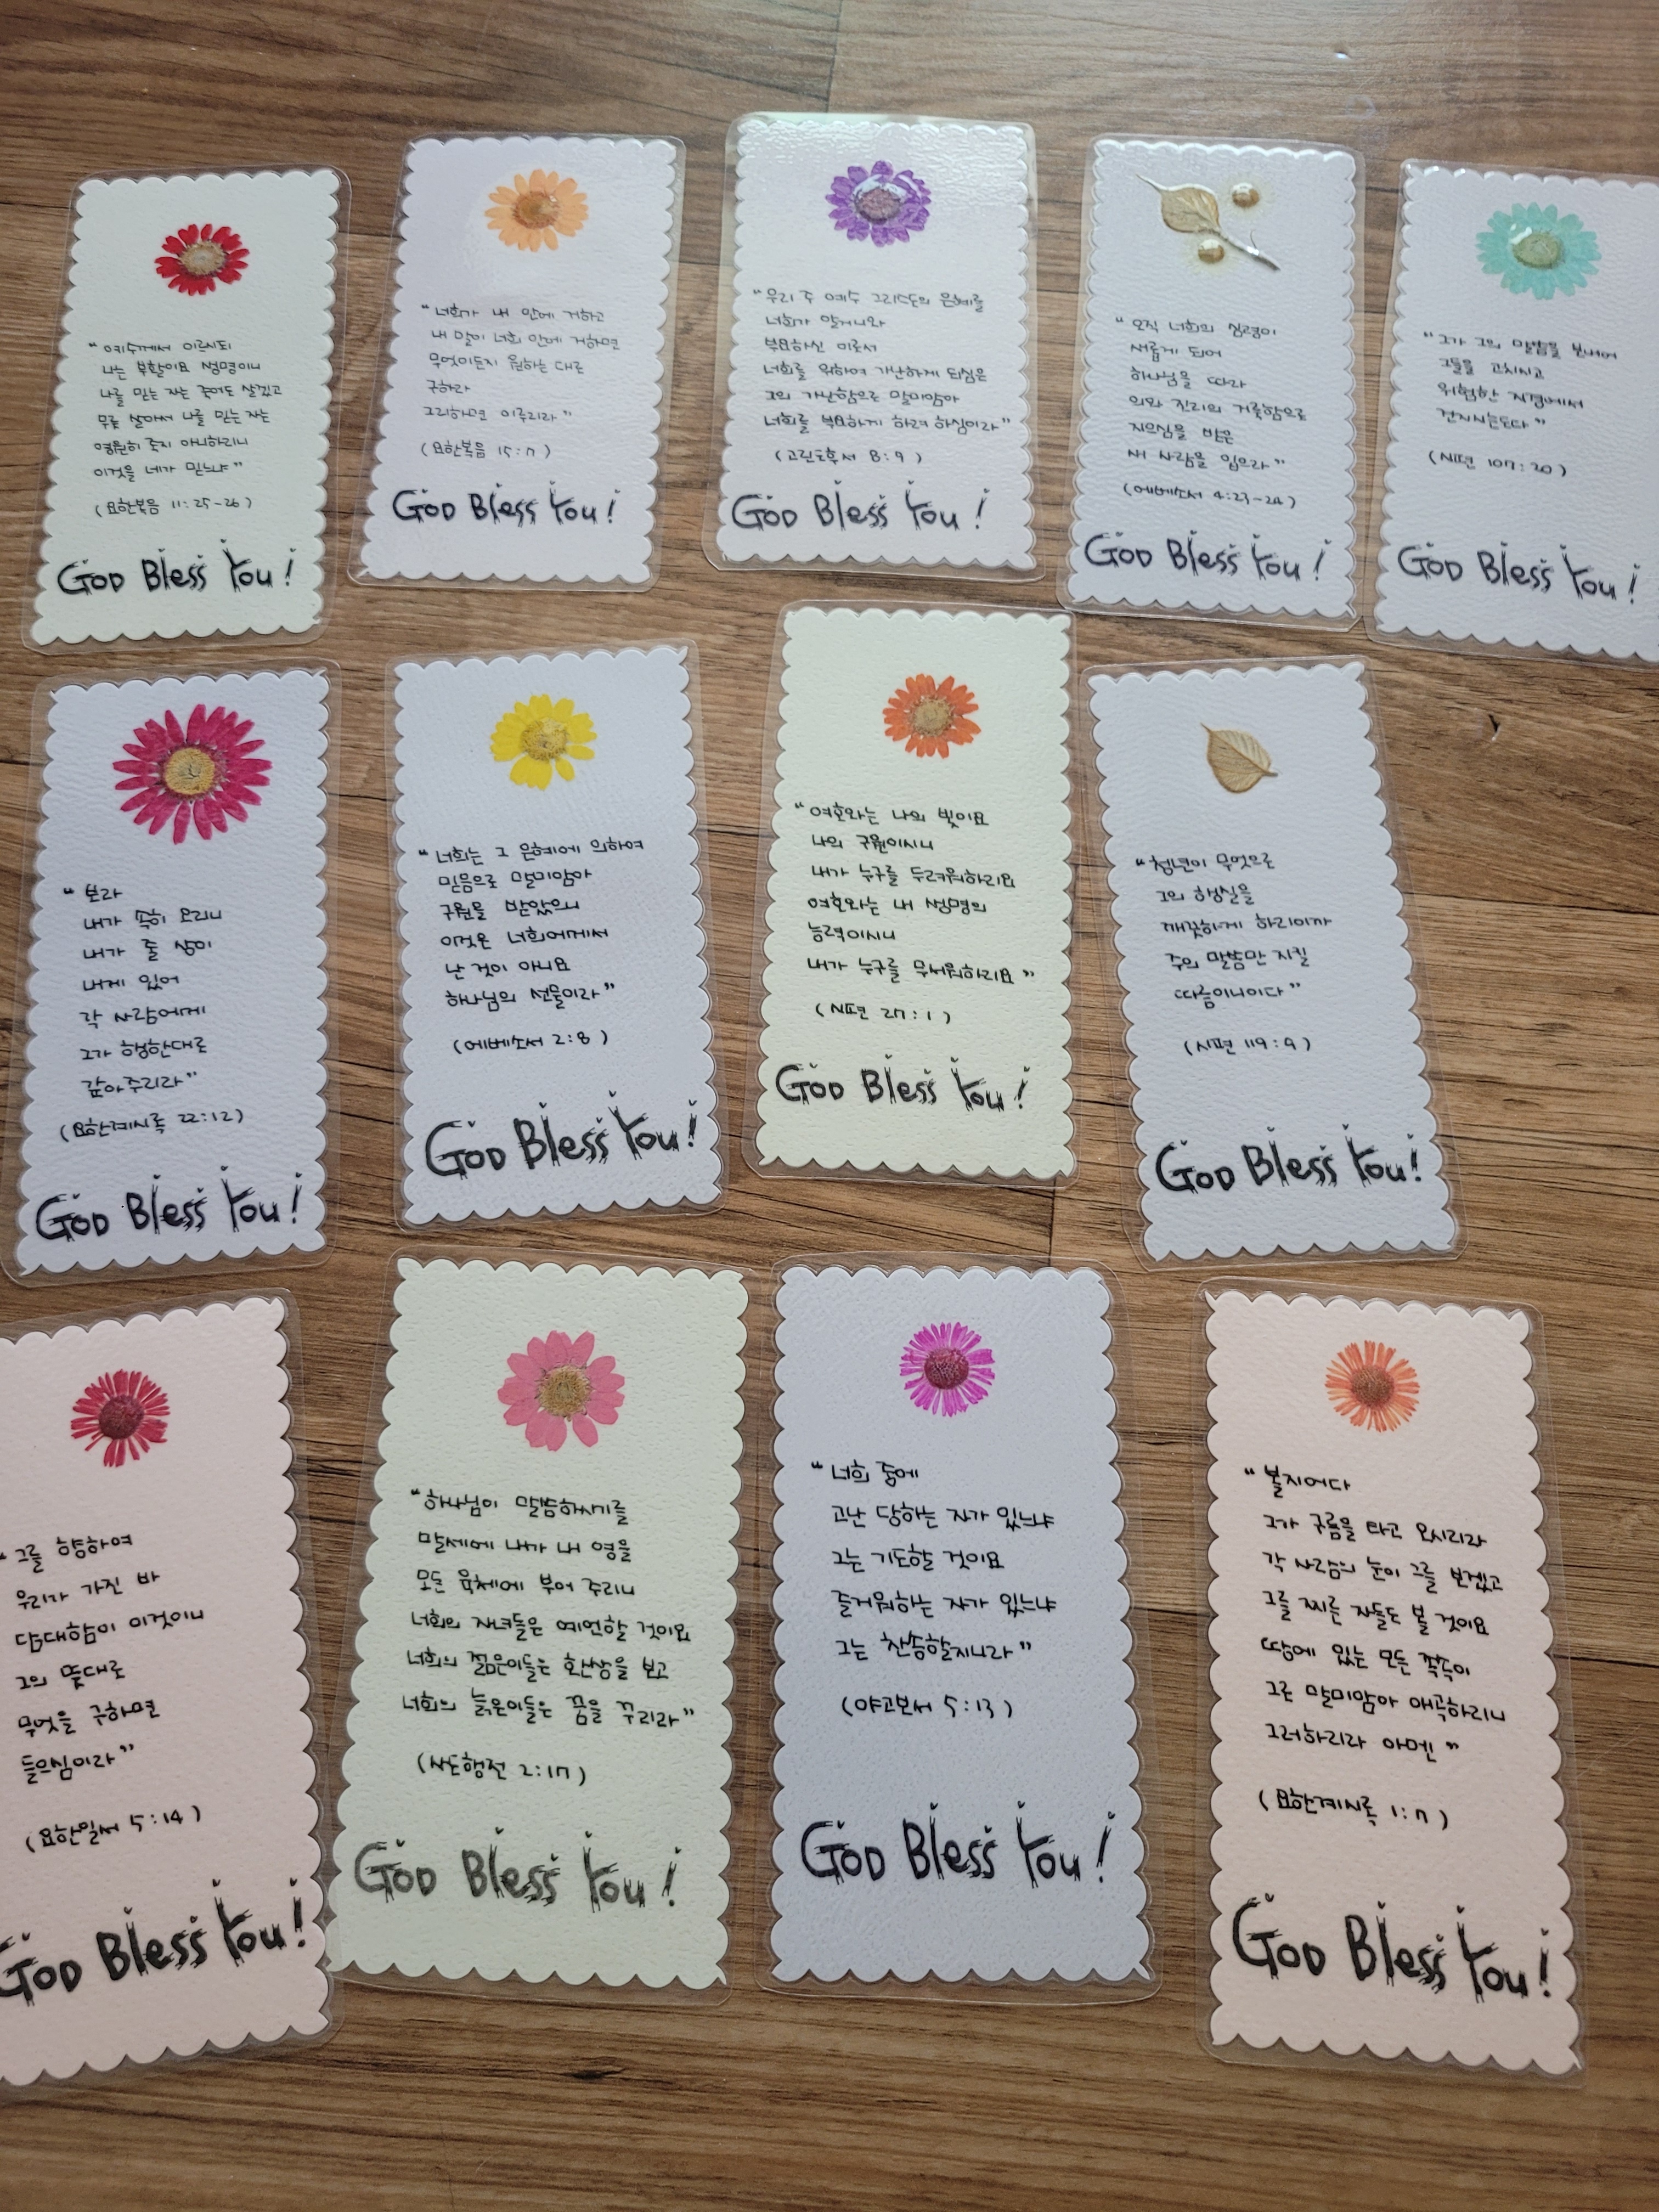 "예수께서 이르시되
나는 부활이요 생명이니
나를 믿는 자는 죽어도 살겠고
무릇 살아서 나를 믿는 자는
영원히 죽지 아니하리니
이것을 네가 믿느냐"
(요한복음 11:25-26)
GOD Bless You!
"너희가 내 안에 거하고
내 말이 너희 안에 거하면
무엇이든지 원하는 대로
구하라
그리하면 이루리라"
(요한복음 15:7)
GOD Bless You!
"우리 주 예수 그리스도의 은혜를
너희가 알거니와
부요하신 이로서
너희를 위하여 가난하게 되심은
그의 가난함으로 말미암아
너희를 부요하게 하려 하심이라"
(고린도후서 8:9)
GOD Bless You!
"오직 너희의 심령이
새롭게 되어
하나님을 따라
의와 진리의 거룩함으로
지으심을 받은
새 사람을 입으라"
(에베소서 4:23-24)
GOD Bless You!
"그가 그의 말씀을 보내어
그들을 고치시고
위험한 지경에서
건지시는도다"
(시편 107:20)
GOD Bless You!
"보라
내가 속히 오리니
내가 줄 상이
내게 있어
각 사람에게
그가 행한대로
갚아주리라"
(요한계시록 22:12)
GOD Bless You!
"너희는 그 은혜에 의하여
믿음으로 말미암아
구원을 받았으니
이것은 너희에게서
난 것이 아니요
하나님의 선물이라"
(에베소서 2:8)
GOD Bless You!
"여호와는 나의 빛이요
나의 구원이시니
내가 누구를 두려워하리요
여호와는 내 생명의
능력이시니
내가 누구를 무서워하리요"
(시편 27:1)
GOD Bless You!
"청년이 무엇으로
그의 행실을
깨끗하게 하리이까
주의 말씀만 지킬
따름이니이다"
(시편 119:9)
GOD Bless You!
"그를 향하여
우리가 가진 바
담대함이 이것이니
그의 뜻대로
무엇을 구하면
들으심이라"
(요한일서 5:14)
GOD Bless You!
"하나님이 말씀하시기를
말세에 내가 내 영을
모든 육체에 부어 주리니
너희의 자녀들은 예언할 것이요
너희의 젊은이들은 환상을 보고
너희의 늙은이들은 꿈을 꾸리라"
(사도행전 2:17)
GOD Bless You!
"너희 중에
고난 당하는 자가 있느냐
그는 기도할 것이요
즐거워하는 자가 있느냐
그는 찬송할지니라"
(야고보서 5:13)
GOD Bless You!
"볼지어다
그가 구름을 타고 오시리라
각 사람의 눈이 그를 보겠고
그를 찌른 자들도 볼 것이요
땅에 있는 모든 족속이
그로 말미암아 애곡하리니
그러하리라 아멘"
(요한계시록 1:7)
GOD Bless You!